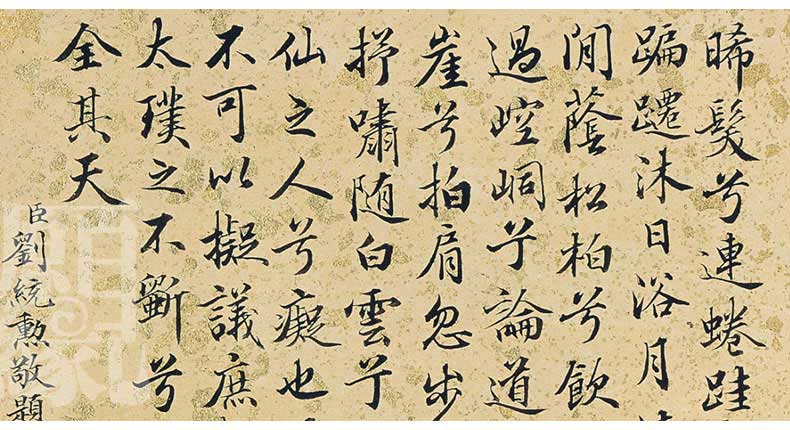 晞髮兮連蜷跬
蹁躚沐日浴月
閒蔭松柏兮飲
過崆峒兮論道
崖兮拍肩忽步
抒嘯随白雲兮
仙之人兮癡也
不可以擬議庶
太璞之不斵兮
全其天
臣劉統勲敬題